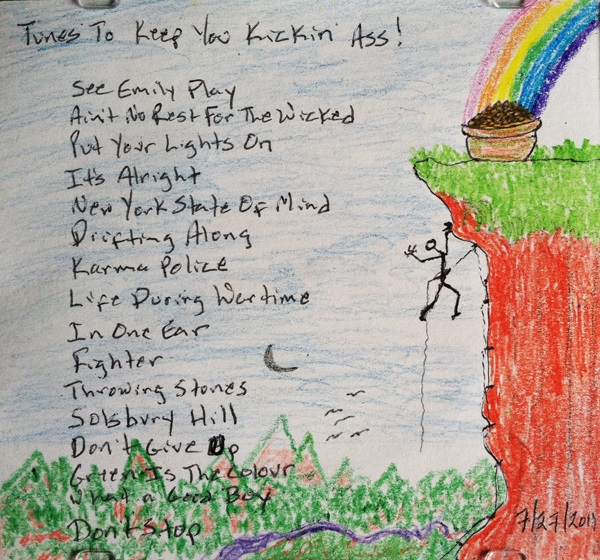 Tunes To Keep You Kickin' Ass!
See Emily Play
Ain't No Rest For The Wicked
Put Your Lights On
It's Alright
New York State Of Mind
Drifting Along
Karma Police
Life During Wartime
In One Ear
Fighter
Throwing Stones
Solsbury Hill
Don't Give Up
Green Is The Colour
What a Good Boy
Don't Stop